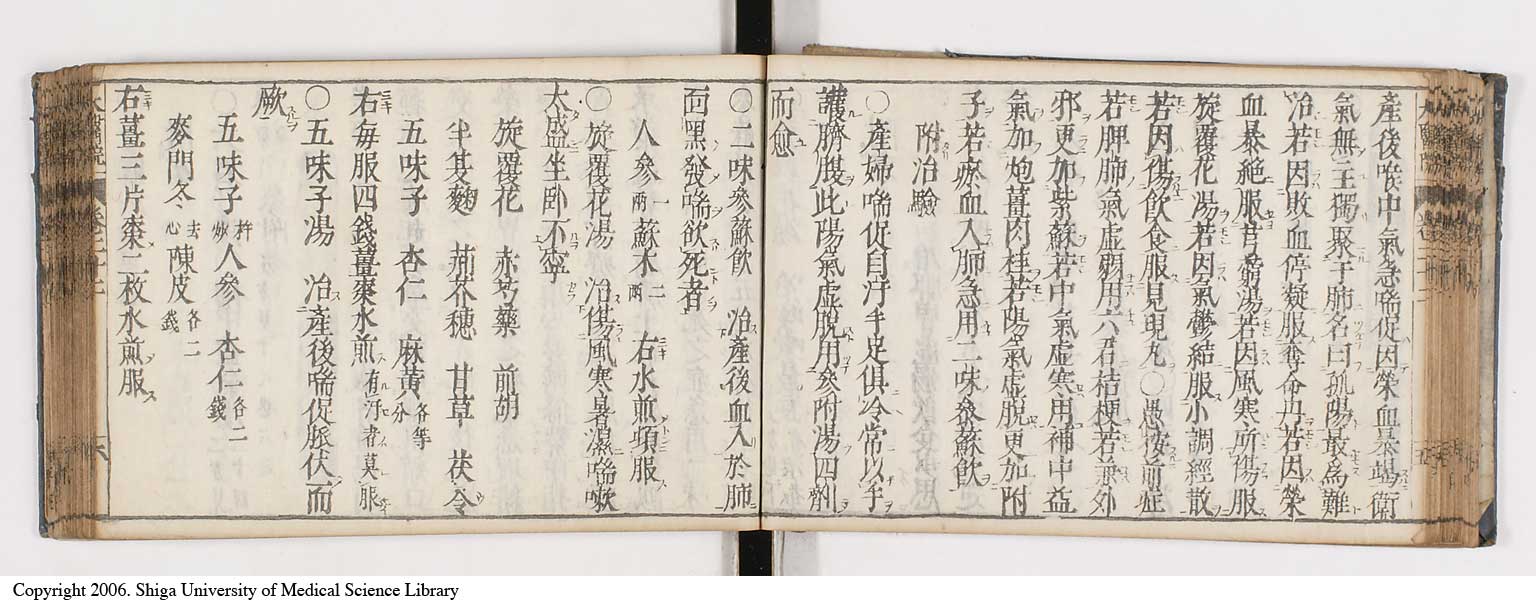 產後喉中氣急喘促因榮血暴竭衛
氣無主獨聚于肺名曰孤陽最為難
治若因敗血停凝服奪命丹若因榮
血暴絶服芎藭湯若因風寒所傷服
旋覆花湯若因氣鬱結服小調經散
若因傷飲食服見晛丸〇愚按前症
若脾肺氣虛弱用六君桔梗若兼外
邪更加紫蘇若中氣虛寒用補中益
氣加炮薑肉桂若陽氣虛脫更加附
子若瘀血入肺急用二味參蘇飲
附治驗
〇產婦喘促自汗手足俱冷常以手
護臍腹此陽氣虛脫用參附湯四劑
而愈
〇二味參蘇飲 治產後血入於肺
面黑發喘欲死者
人參一兩 蘇木二兩 右水煎頓服
〇旋覆花湯 治傷風寒暑濕喘嗽
太盛坐卧不寧
旋覆花 赤芍藥 前胡
半夏麯 荊芥穗 甘草 茯令
五味子 杏仁 麻黃各等分
右每服四錢薑棗水煎有汗者莫服
〇五味子湯 治產後喘促脈伏而
厥
五味子杵炒 人參 杏仁各二錢
麥門冬去心 陳皮各二錢
右薑三片棗二枚水煎服
Copyright 2006. Shiga University of Medical Science Library